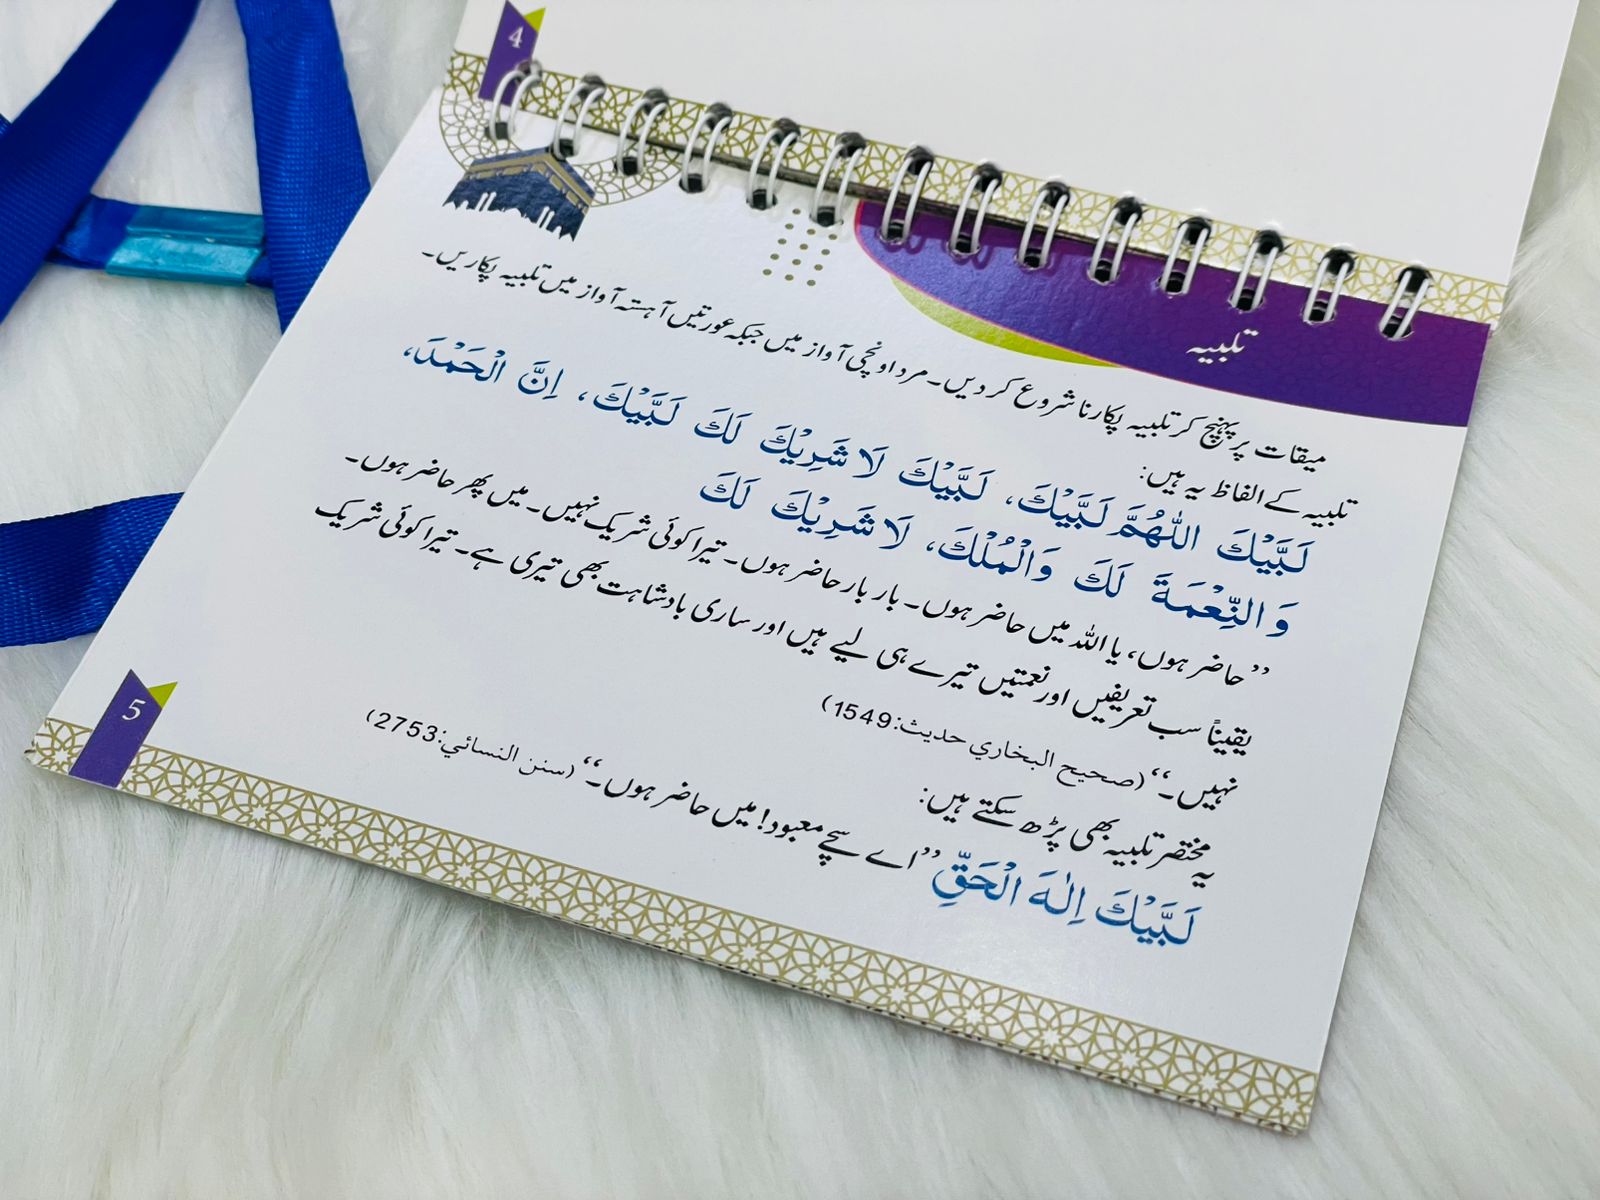 4
تلبیہ
میقات پر پہنچ کر تلبیہ پکارنا شروع کر دیں۔ مرد اونچی آواز میں جبکہ عورتیں آہستہ آواز میں تلبیہ پکاریں۔
تلبیہ کے الفاظ یہ ہیں:
لَبَّيْكَ اللّٰهُمَّ لَبَّيْكَ، لَبَّيْكَ لَا شَرِيْكَ لَكَ لَبَّيْكَ، اِنَّ الْحَمْدَ،
وَالنِّعْمَةَ لَكَ وَالْمُلْكَ، لَا شَرِيْكَ لَكَ
”حاضر ہوں، یا اللہ میں حاضر ہوں۔ بار بار حاضر ہوں۔ تیرا کوئی شریک نہیں۔ میں پھر حاضر ہوں۔
یقیناً سب تعریفیں اور نعمتیں تیرے ہی لیے ہیں اور ساری بادشاہت بھی تیری ہے۔ تیرا کوئی شریک
نہیں۔“ (صحیح البخاري حدیث:1549)
یہ مختصر تلبیہ بھی پڑھ سکتے ہیں:
لَبَّيْكَ اِلٰهَ الْحَقِّ ”اے سچے معبود! میں حاضر ہوں۔“ (سنن النسائي:2753)
5